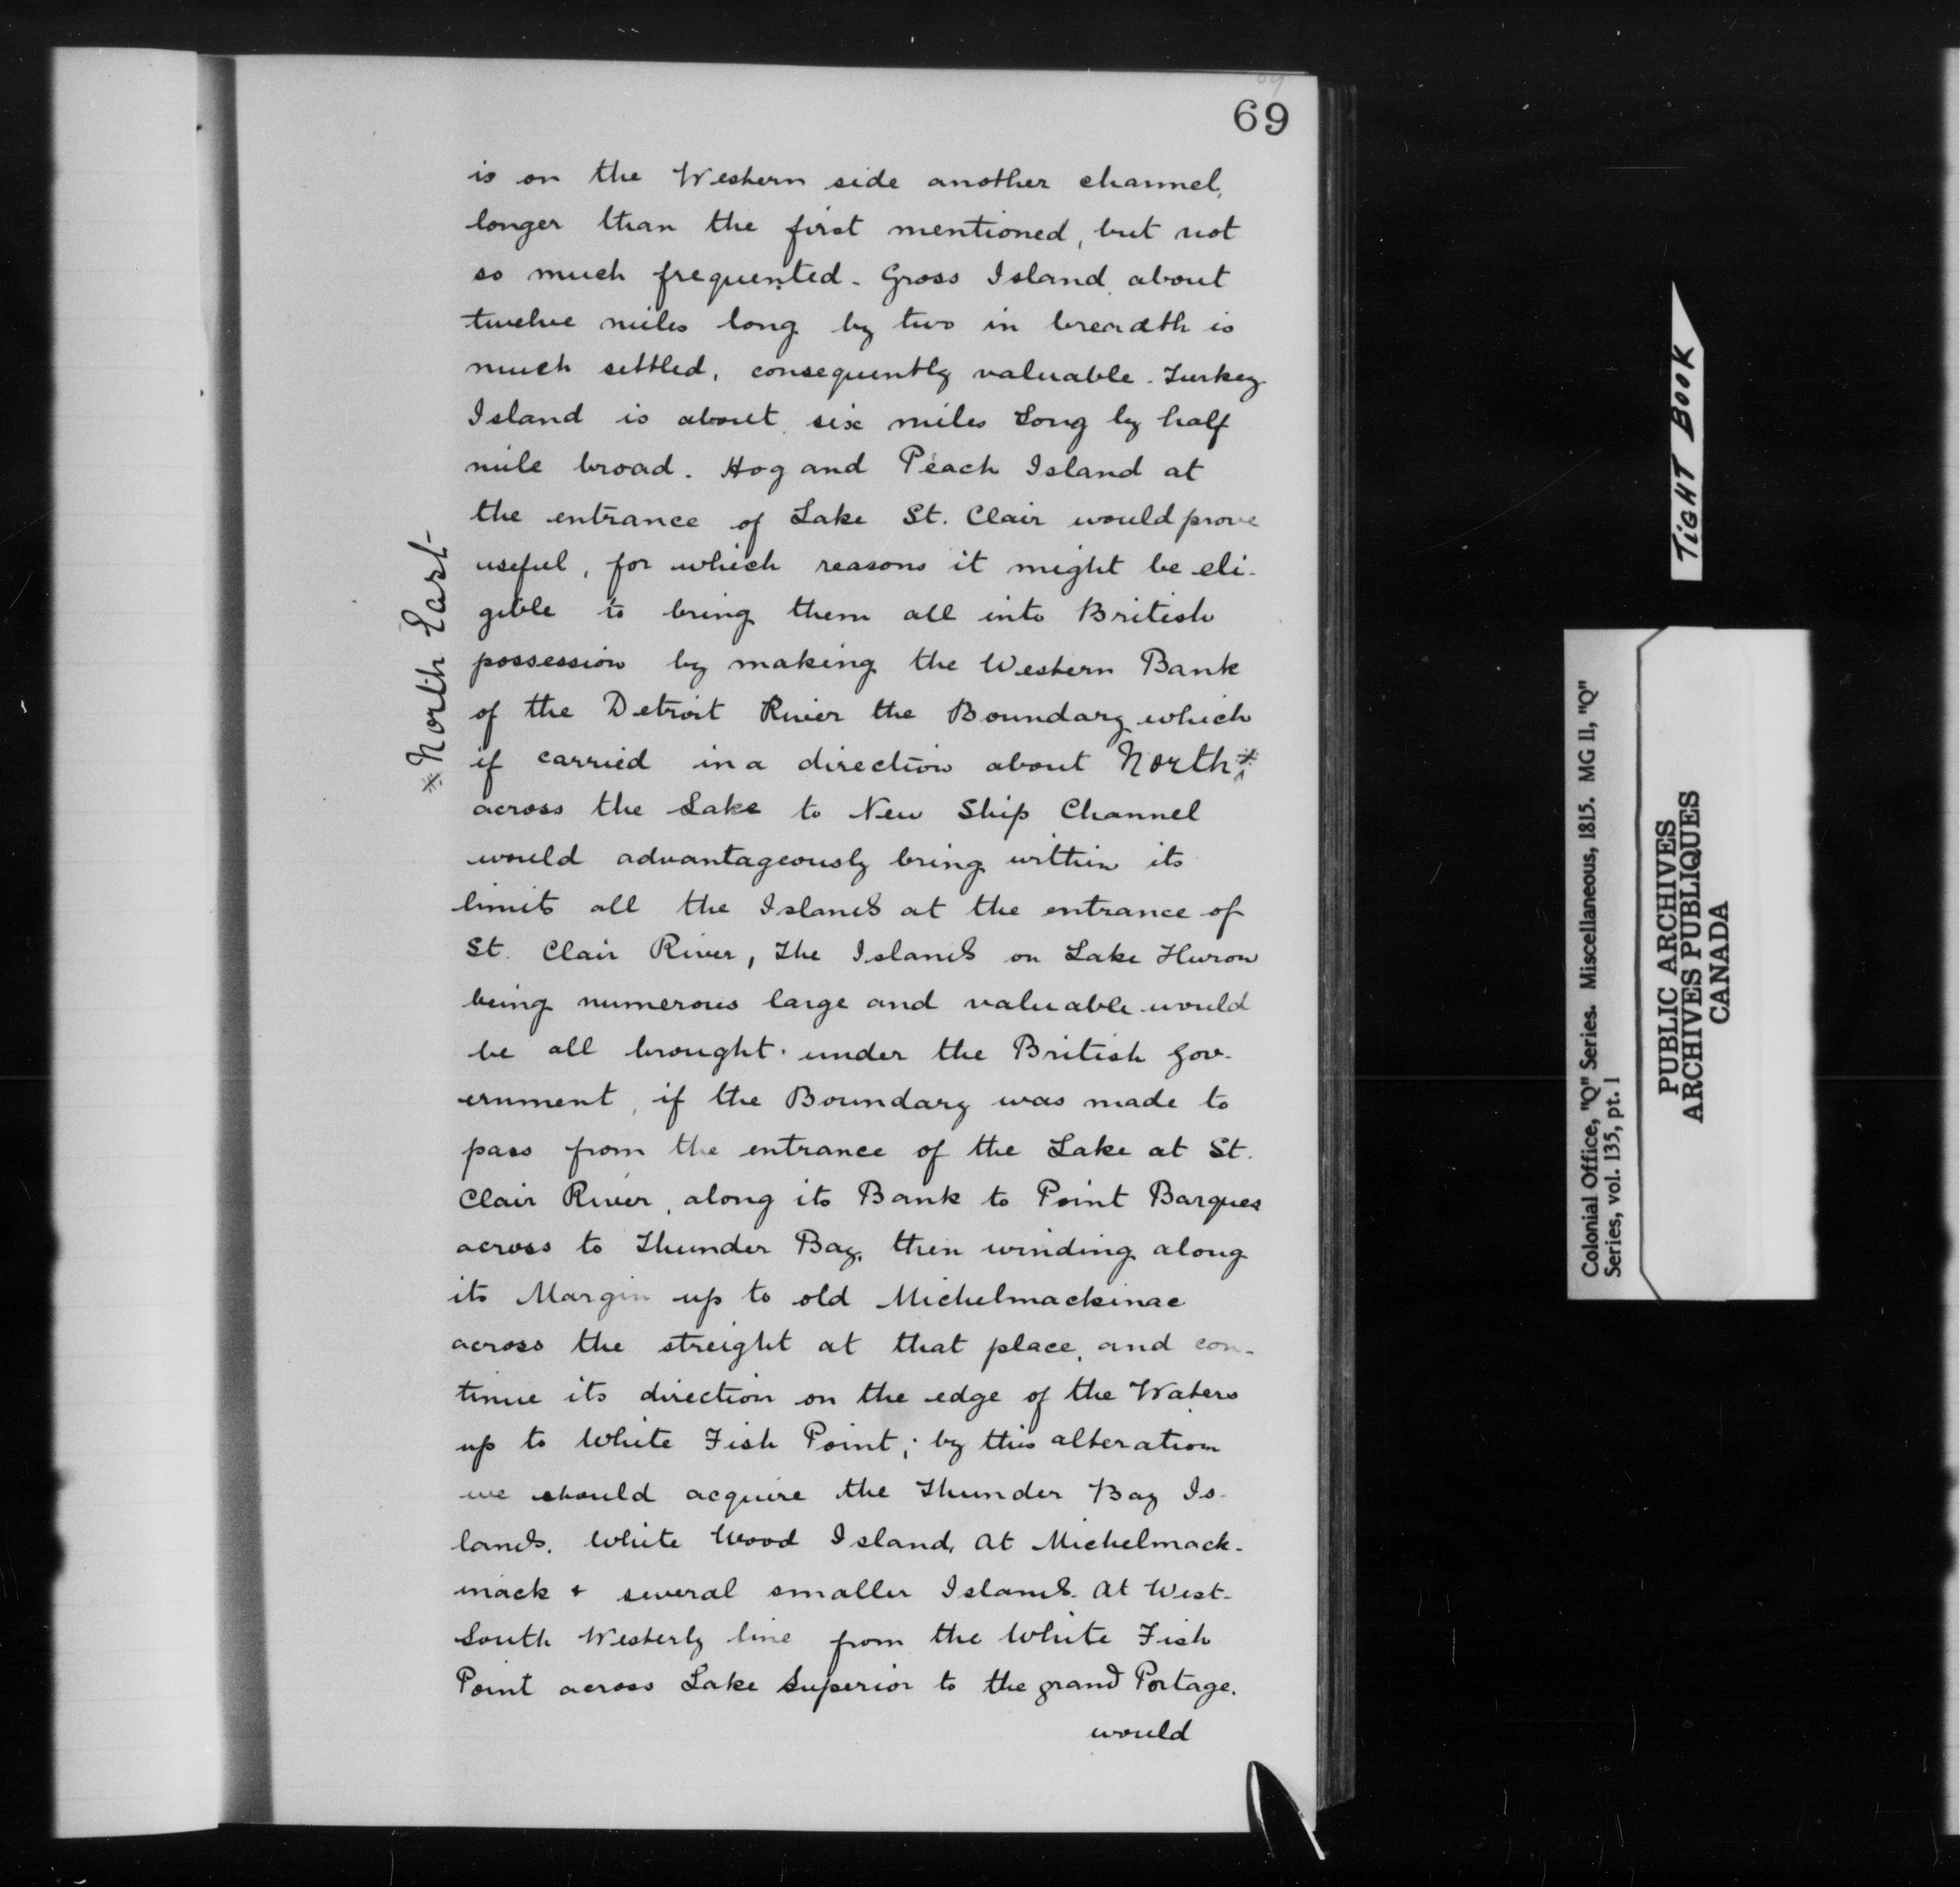 69
is on the Western side another channel,
longer than the first mentioned, but not
so much frequented. Gross Island about
twelve miles long by two in breadth is
much settled, consequently valuable. Turkey
Island is about six miles Long by half
mile broad. Hog and Peach Island at
the entrance of Lake St. Clair would prove
useful, for which reasons it might be eli-
gible to bring them all into British
possession by making the Western Bank
of the Detroit River the Boundary which
if carried in a direction about North *
* North East
across the Lake to New Ship Channel
would advantageously bring within its
limits all the Islands at the entrance of
St. Clair River, The Islands on Lake Huron
being numerous large and valuable would
be all brought under the British Gov-
ernment, if the Boundary was made to
pass from the entrance of the Lake at St.
Clair River, along its Bank to Point Barques
across to Thunder Bay, then winding along
its Margin up to old Michelmackinac
across the streight at that place, and con-
tinue its direction on the edge of the Waters
up to White Fish Point; by this alteration
we should acquire the Thunder Bay Is-
lands, White Wood Island, at Michelmack-
inack & several smaller Islands. At West-
South Westerly line from the White Fish
Point across Lake Superior to the grand Portage.
would
TIGHT BOOK
Colonial Office, "Q" Series. Miscellaneous, 1815. MG 11, "Q"
Series, vol. 135, pt. 1
PUBLIC ARCHIVES
ARCHIVES PUBLIQUES
CANADA